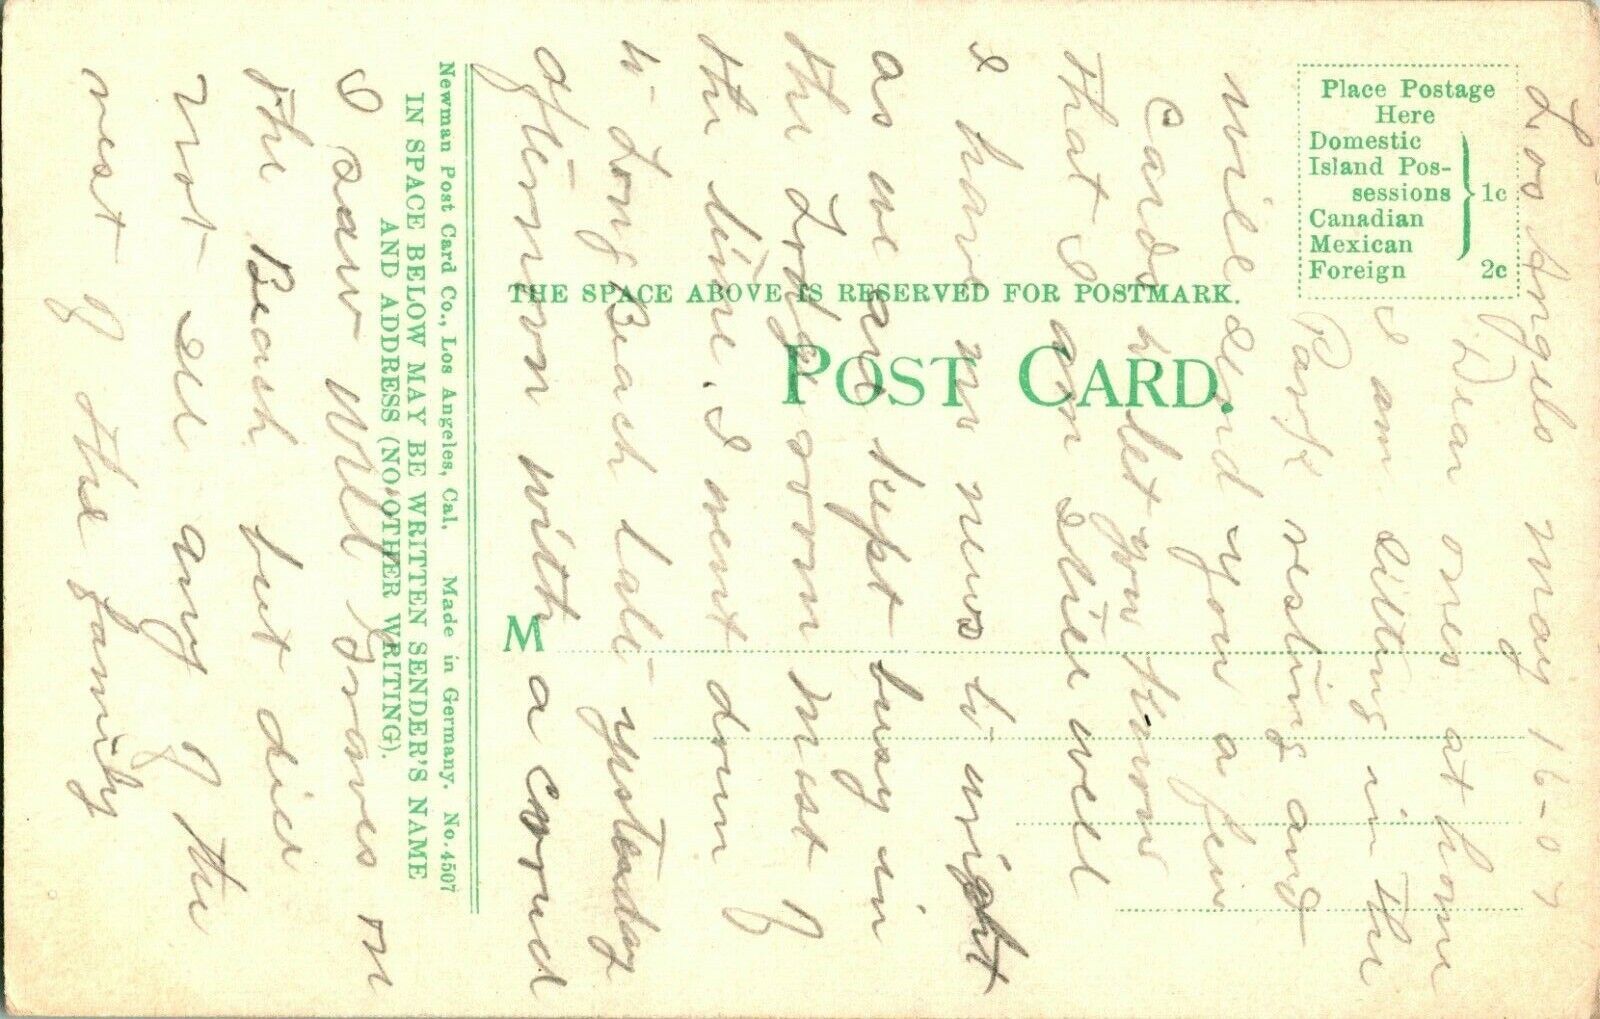 Place Postage
Here
Domestic
Island Pos-
sessions
Canadian
Mexican
1c
Foreign 2c
THE SPACE ABOVE IS RESERVED FOR POSTMARK.
POST CARD.
M
Newman Post Card Co., Los Angeles, Cal. Made in Germany. No. 4507
IN SPACE BELOW MAY BE WRITTEN SENDER'S NAME
AND ADDRESS (NO OTHER WRITING).
Los Angels May 16-07
Dear ones at home
I am sitting in the
Park resting and
will send you a few
Cards to let you know
that I am still well
I have no news to wright
as we are kept busy in
the Lodge room most of
the time. I went down
to Long Beach late yesterday
afternoon with a crowd
I saw Will Graves on
the Beach but did
not see any of the
rest of the family